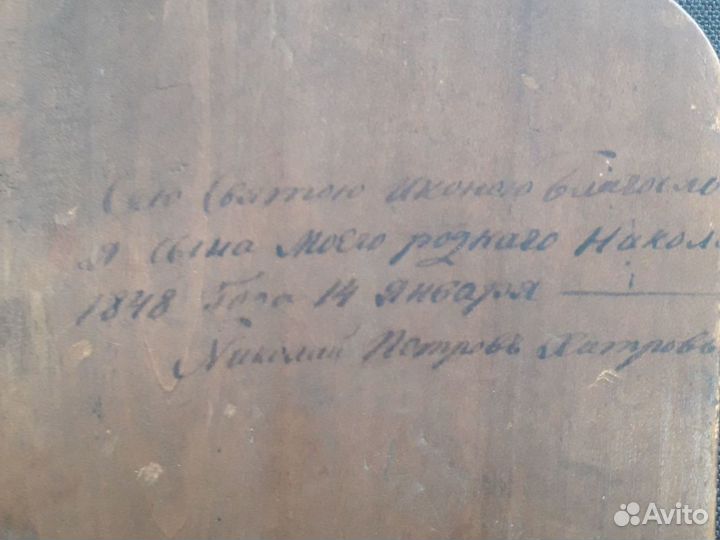 Сею Святою иконою благосло
я сына моего роднаго Никол
1848 Года 14 января
Николай Петровъ Хитровъ
Avito